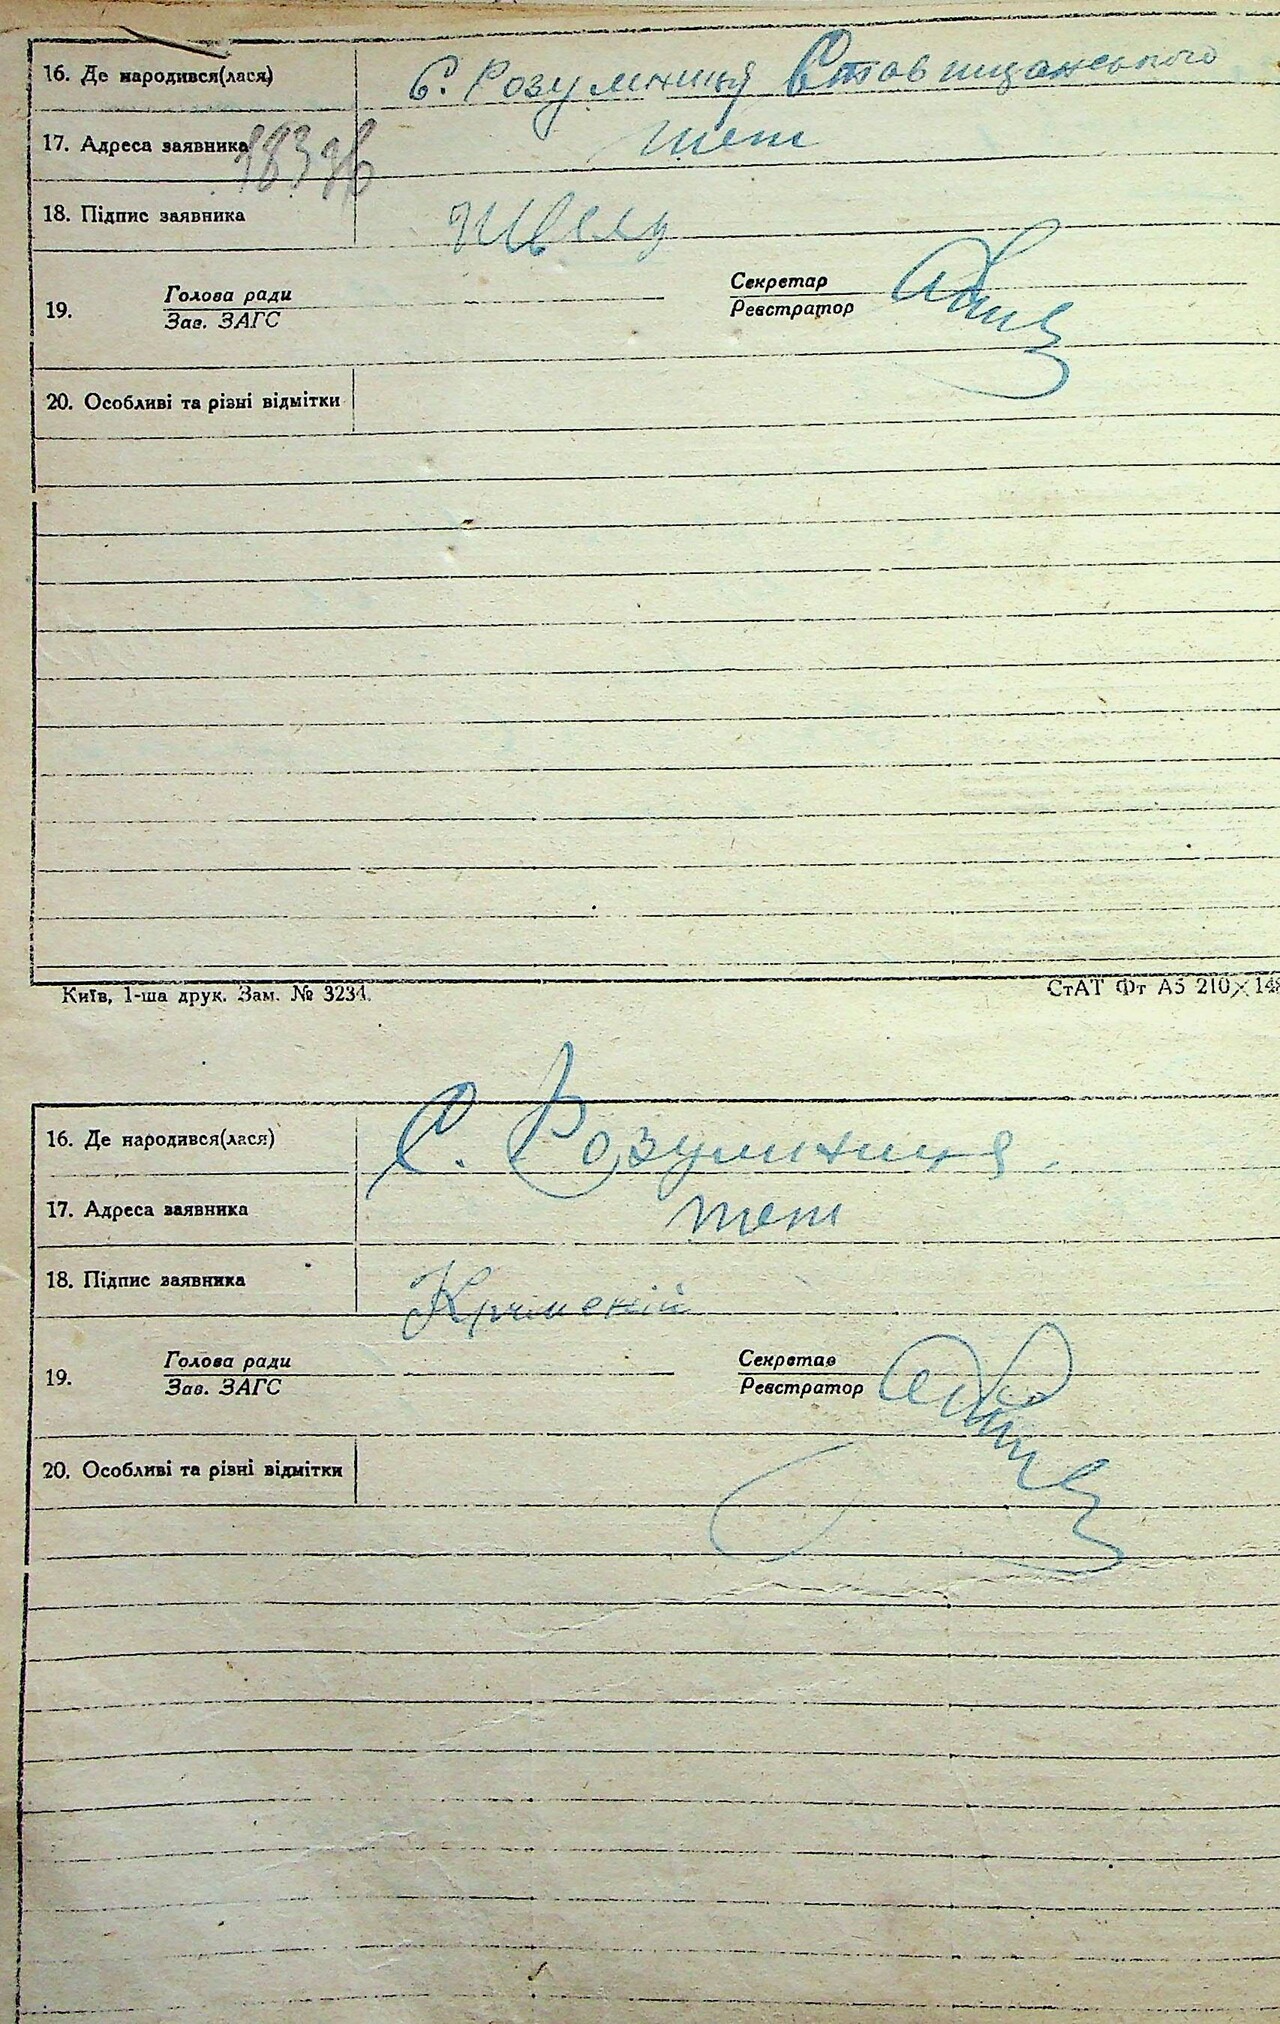 16. Де народився(лася) С. Розумниця Ставищанського
17. Адреса заявника теж
18. Підпис заявника
19. Голова ради Секретар
Зав. ЗАГС Реєстратор
20. Особливі та різні відмітки
Київ, 1-ша друк. Зам. № 3234. СтАТ Фт А5 210×148
16. Де народився(лася) С. Розумниця.
17. Адреса заявника теж
18. Підпис заявника Кріменій
19. Голова ради Секретар
Зав. ЗАГС Реєстратор
20. Особливі та різні відмітки